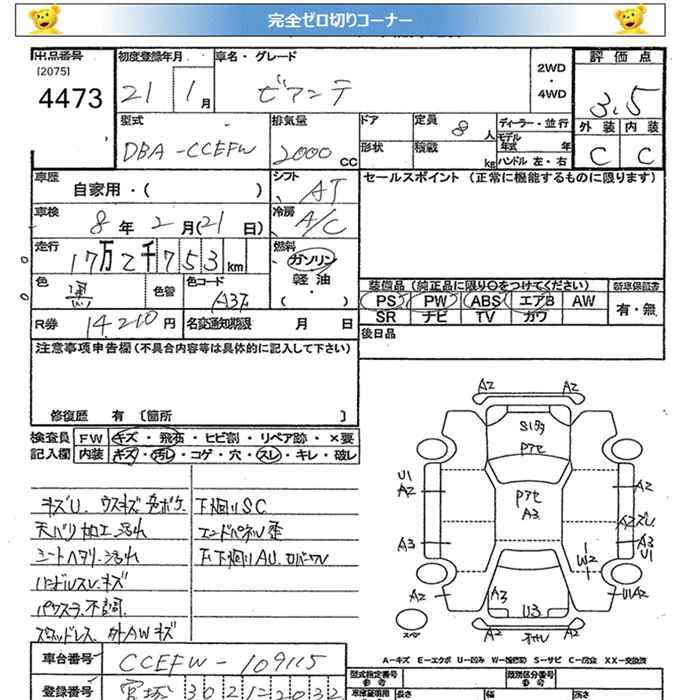 完全ゼロ切りコーナー
出品番号 初度登録年月 車名・グレード 評価点
[2075]
4473 21 1月 ビアンテ 2WD・4WD 3.5
型式 排気量 ドア 定員 8人 ディーラー・並行 外装 内装
DBA-CCEFW 2000CC 形状 積載 kg モデル年式 年 ハンドル 左・右 C C
車歴 自家用・( ) シフト AT セールスポイント (正常に機能するものに限ります)
車検 8年2月(21日) 冷房 A/C
走行 17万2千753km 燃料 ガソリン
軽油
・( )
色 黒 色替 色コード A3F 装備品(純正品に限り○をつけてください) 新車保証書
PS PW ABS エアB AW 有・無
SR ナビ TV カワ
R券 14210円 名変通知期限 月 日 後日品
注意事項申告欄(不具合内容等は具体的に記入して下さい)
修復歴 有 〔箇所 〕
検査員 FW キズ・飛石・ヒビ割・リペア跡・×要
記入欄 内装 キズ・汚レ・コゲ・穴・スレ・キレ・破レ
キズU、ウスキズ 色ボケ 下回りSC
天バリ加工 汚れ エンドパネル歪
シートヘタリ・汚れ
ハンドルスレ・キズ
パワスラ不調
スタッドレス 外AWキズ
A2 A2
アセ
U1
A2
アセ
A3
A2
A3 A3
U1
W2
A2 A3 U3 U1A2
スペア A2 A2
A-キズ E-エクボ U-凹み W-補修跡 S-サビ C-腐食 XX-交換済
車台番号 CCEFW-109115 型式指定番号 類別区分番号
登録番号 宮城 302 車両証明用 長さ 幅 高さ